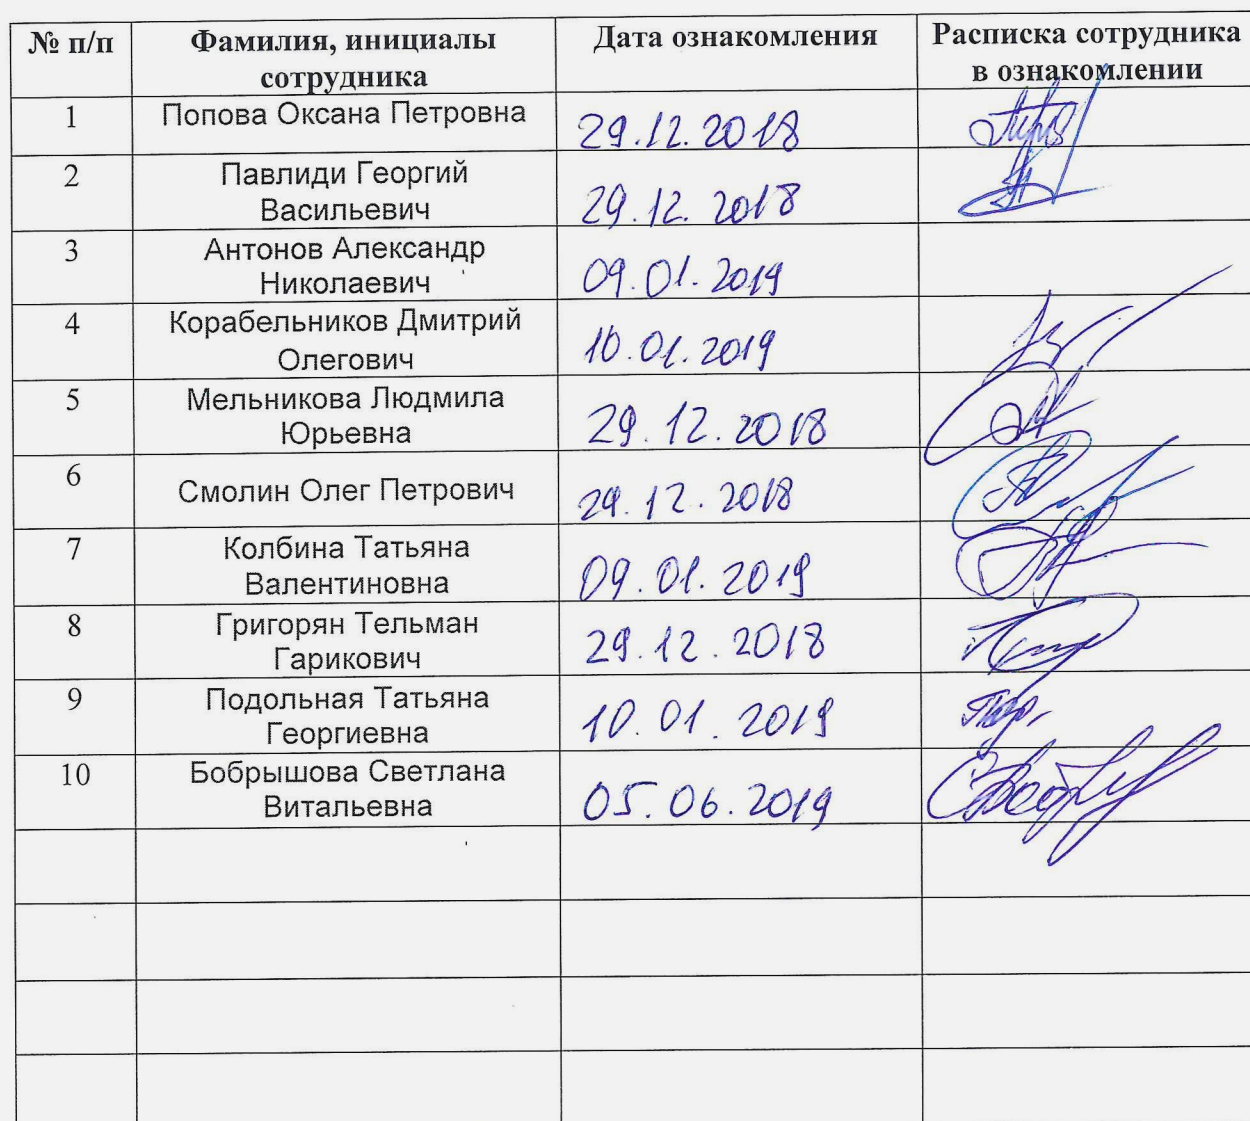 № п/п
Фамилия, инициалы
сотрудника
Дата ознакомления
Расписка сотрудника
в ознакомлении
1
Попова Оксана Петровна
29.12.2018
2
Павлиди Георгий
Васильевич
29.12.2018
3
Антонов Александр
Николаевич
09.01.2019
4
Корабельников Дмитрий
Олегович
10.01.2019
5
Мельникова Людмила
Юрьевна
29.12.2018
6
Смолин Олег Петрович
29.12.2018
7
Колбина Татьяна
Валентиновна
09.01.2019
8
Григорян Тельман
Гарикович
29.12.2018
9
Подольная Татьяна
Георгиевна
10.01.2019
10
Бобрышова Светлана
Витальевна
05.06.2019